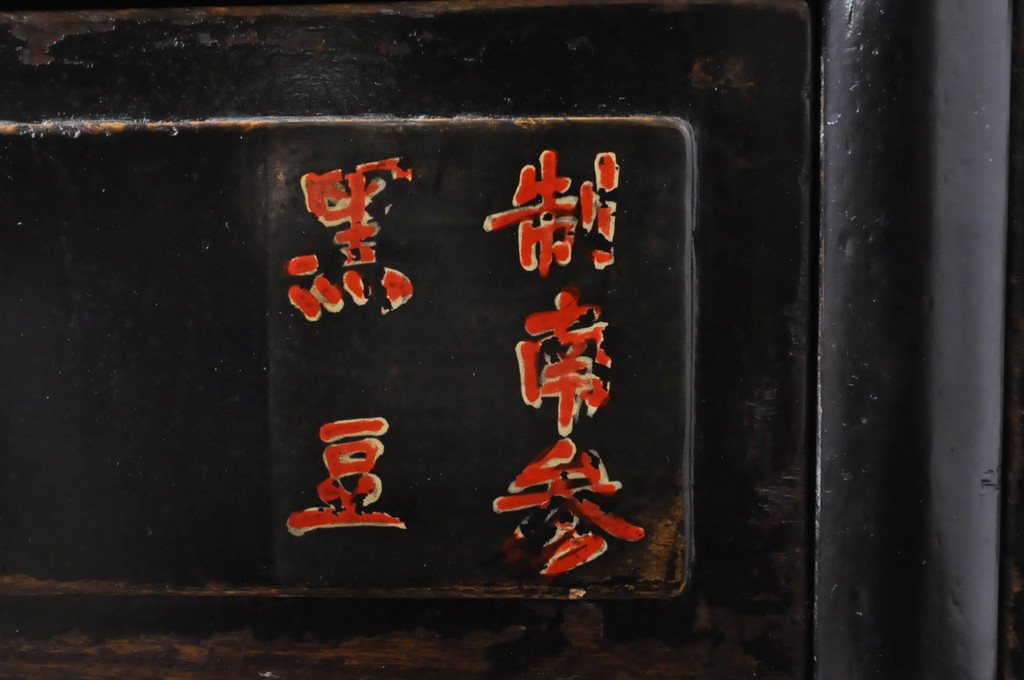 制南參
黑豆